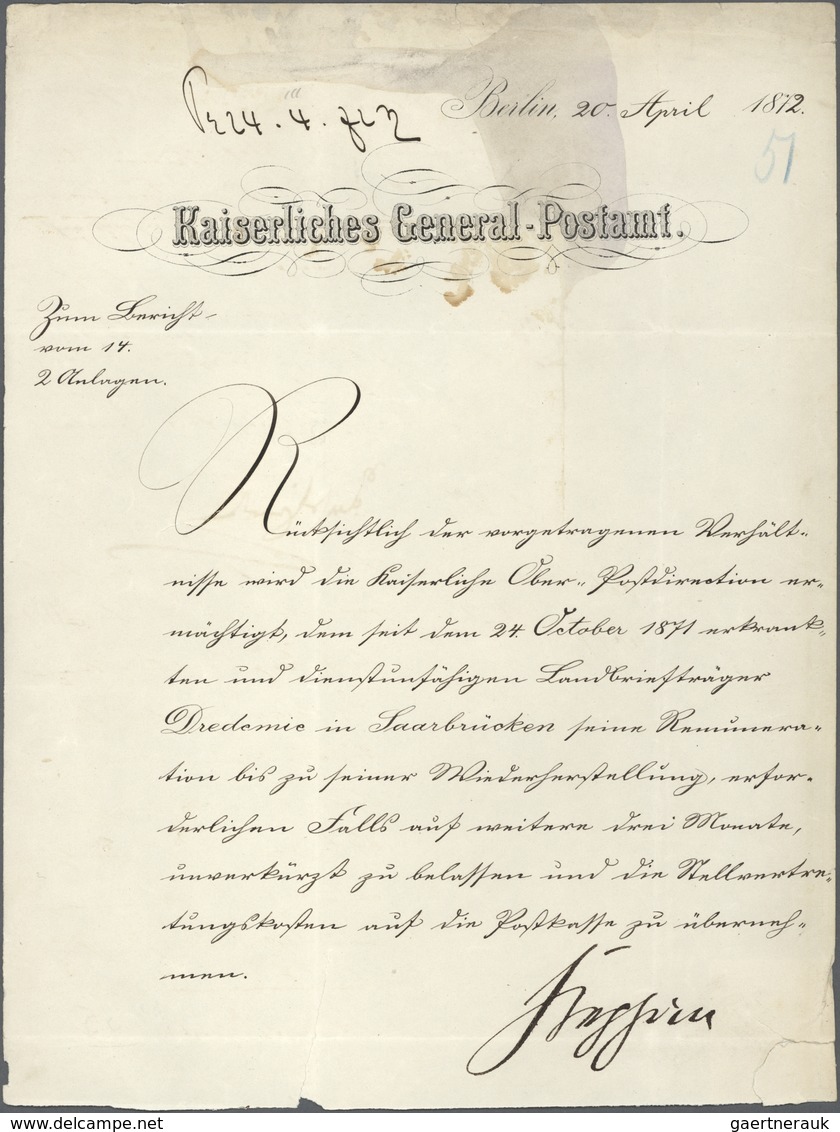 Berlin, 20. April 1872.
51
Kaiserliches General-Postamt.
Zum Bericht
vom 14.
2 Anlagen.
Rücksichtlich der vorgetragenen Verhält-
nisse wird die Kaiserliche Ober-Postdirection er-
mächtigt, dem seit dem 24. October 1871 erkrank-
ten und dienstunfähigen Landbriefträger
Dredemie in Saarbrücken seine Remunera-
tion bis zu seiner Wiederherstellung, erfor-
derlichen Falls auf weitere drei Monate,
unverkürzt zu belassen und die Stellvertre-
tungskosten auf die Postkasse zu überneh-
men.
Stephan
DELCAMPE.NET
gaertnerauk